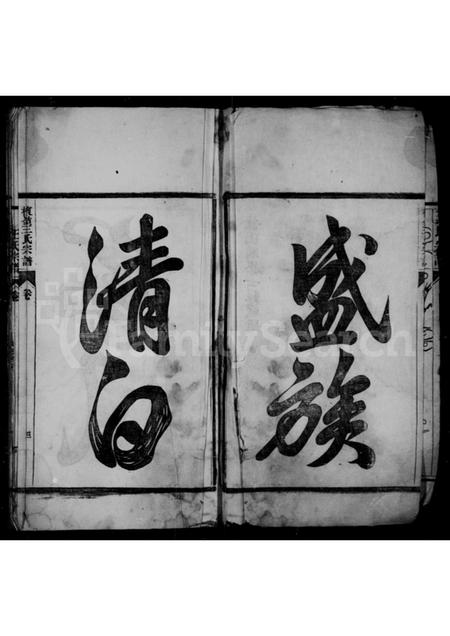 盛族
清白
王氏宗譜
卷
三
FamilySearch